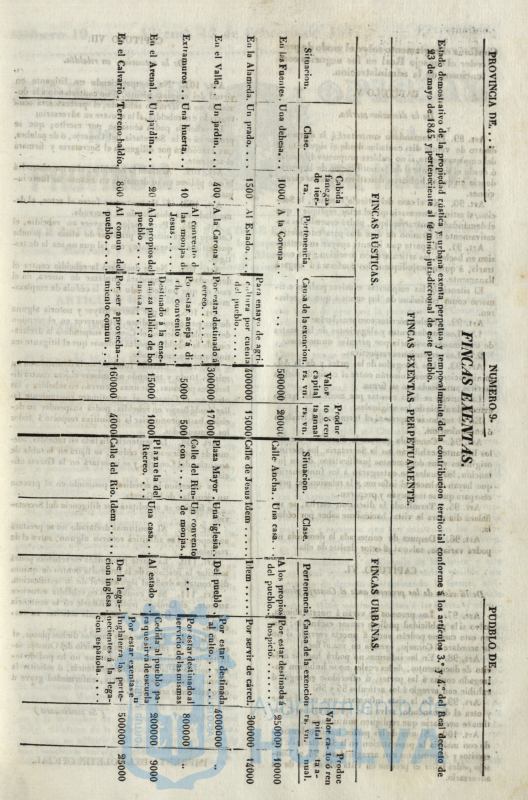 PROVINCIA DE. . . .
NUMERO 9.
PUEBLO DE. . . .
FINCAS EXENTAS.
Estado demostrativo de la propiedad rústica y urbana exenta perpetua y temporalmente de la contribucion territorial conforme á los artículos 3.º y 4.º del Real decreto de
23 de mayo de 1845 y perteneciente al término jurisdiccional de este pueblo.
FINCAS EXENTAS PERPETUAMENTE.
FINCAS RÚSTICAS.
FINCAS URBANAS.
Situacion. Clase. Cabida fanegas de tierra. Pertenencia. Causa de la exencion. Valor capital rs. vn. Producto ó renta anual rs. vn. Situacion. Clase. Pertenencia. Causa de la exencion Valor capital rs. vn. Producto ó renta anual.
En las Fuentes. Una dehesa. . . 1000. A la Corona . . . 500000 20000 Calle Ancha. . Una casa. . . A los propios del pueblo. . Por estar destinada á hospicio. . . . 250000 10000
En la Alameda. Un prado. . . . 1500 Al Estado. . . . Para ensayo de agricultura por cuenta del pueblo. . . . 400000 15000 Calle de Jesus Idem . . . . . Idem . . . . . Por servir de carcel. 300000 14000
En el Valle. . . Un jardin. . . . 400 A la Corona. . . Por estar destinado á recreo. . . . 300000 17000 Plaza Mayor . Una iglesia. . Del pueblo . Por estar destinada al culto. . . . 4000000 "
Extramuros. . . Una huerta. . . 10 Al convento de las monjas de Jesus. . . . Por estar aneja á dicho convento . . . 5000 500 Calle del Rincon. . . . Un convento de monjas. . . . Por estar destinado al servicio de las mismas 800000 "
En el Arenal. . Un jardin. . . . 20 A los propios del pueblo. . . . Destinado á la enseñanza pública de botánica. . . . 15000 1000 Plazuela del Recreo. . . Una casa. . . Al estado . . Cedida al pueblo para que sirva de escuela 200000 9000
En el Calvario. Terreno baldio. 800 Al comun del pueblo. . . . Por ser aprovechamiento comun . . . 160000 4000 Calle del Rio. Idem . . . . De la legacion inglesa Por estar exentas en Inglaterra las pertenecientes á la legacion española. . . . 500000 25000
Ayuntamiento de
HUELVA